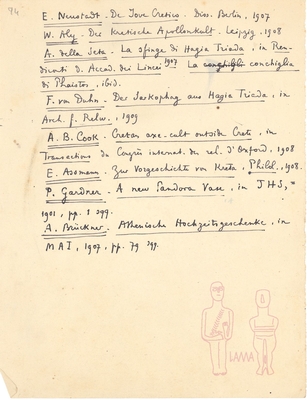 94
E. Neustadt. De Jove Cretico. Diss. Berlin, 1907
W. Aly. Der Kretische Apollonkult. Leipzig. 1908
A. della Seta. La sfinge di Hagia Triada, in Ren-
diconti d. Accad. dei Lincei 1907 La conghigli conchiglia
di Phaistos, ibid.
F. von Duhn. Der Sarkophag aus Hagia Triada, in
Arch. f. Relw., 1909
A. B. Cook. Cretan axe-cult outside Crete, in
Transactions du Congrès internat. des rel. d'Oxford, 1908
E. Assmann. Zur Vorgeschichte von Kreta, Philol., 1908.
P. Gardner. A new Pandora Vase, in JHS,
1901, pp. 1 sqq.
A. Brückner. Athenische Hochzeitsgeschenke, in
MAI, 1907, pp. 79 sqq.
LAMA